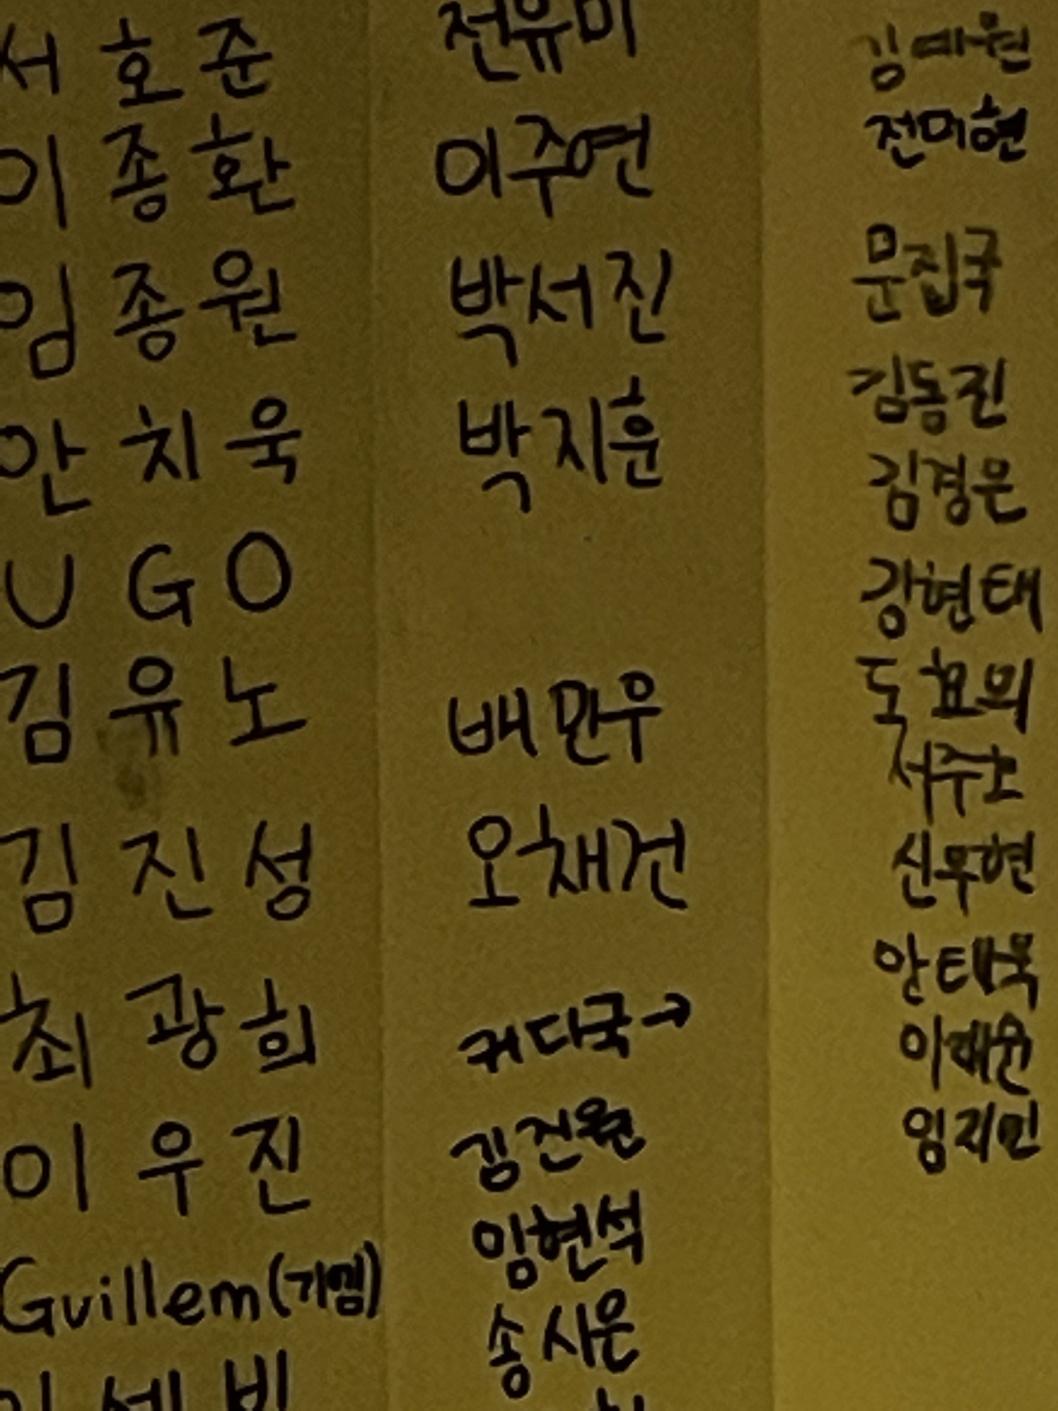 서호준
이종환
임종원
안치욱
UGO
김유노
김진성
최광희
이우진
Guillem(기옘)
전유미
이주연
박서진
박지훈
배만우
오채건
커디국→
김건원
임현석
송시은
김예원
전미현
문집국
김동진
김경은
강현태
도효의
서주호
신우현
안태욱
이재윤
임지민